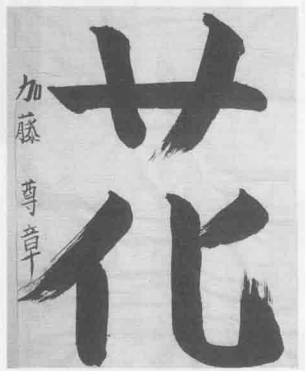 花
加藤 尊章